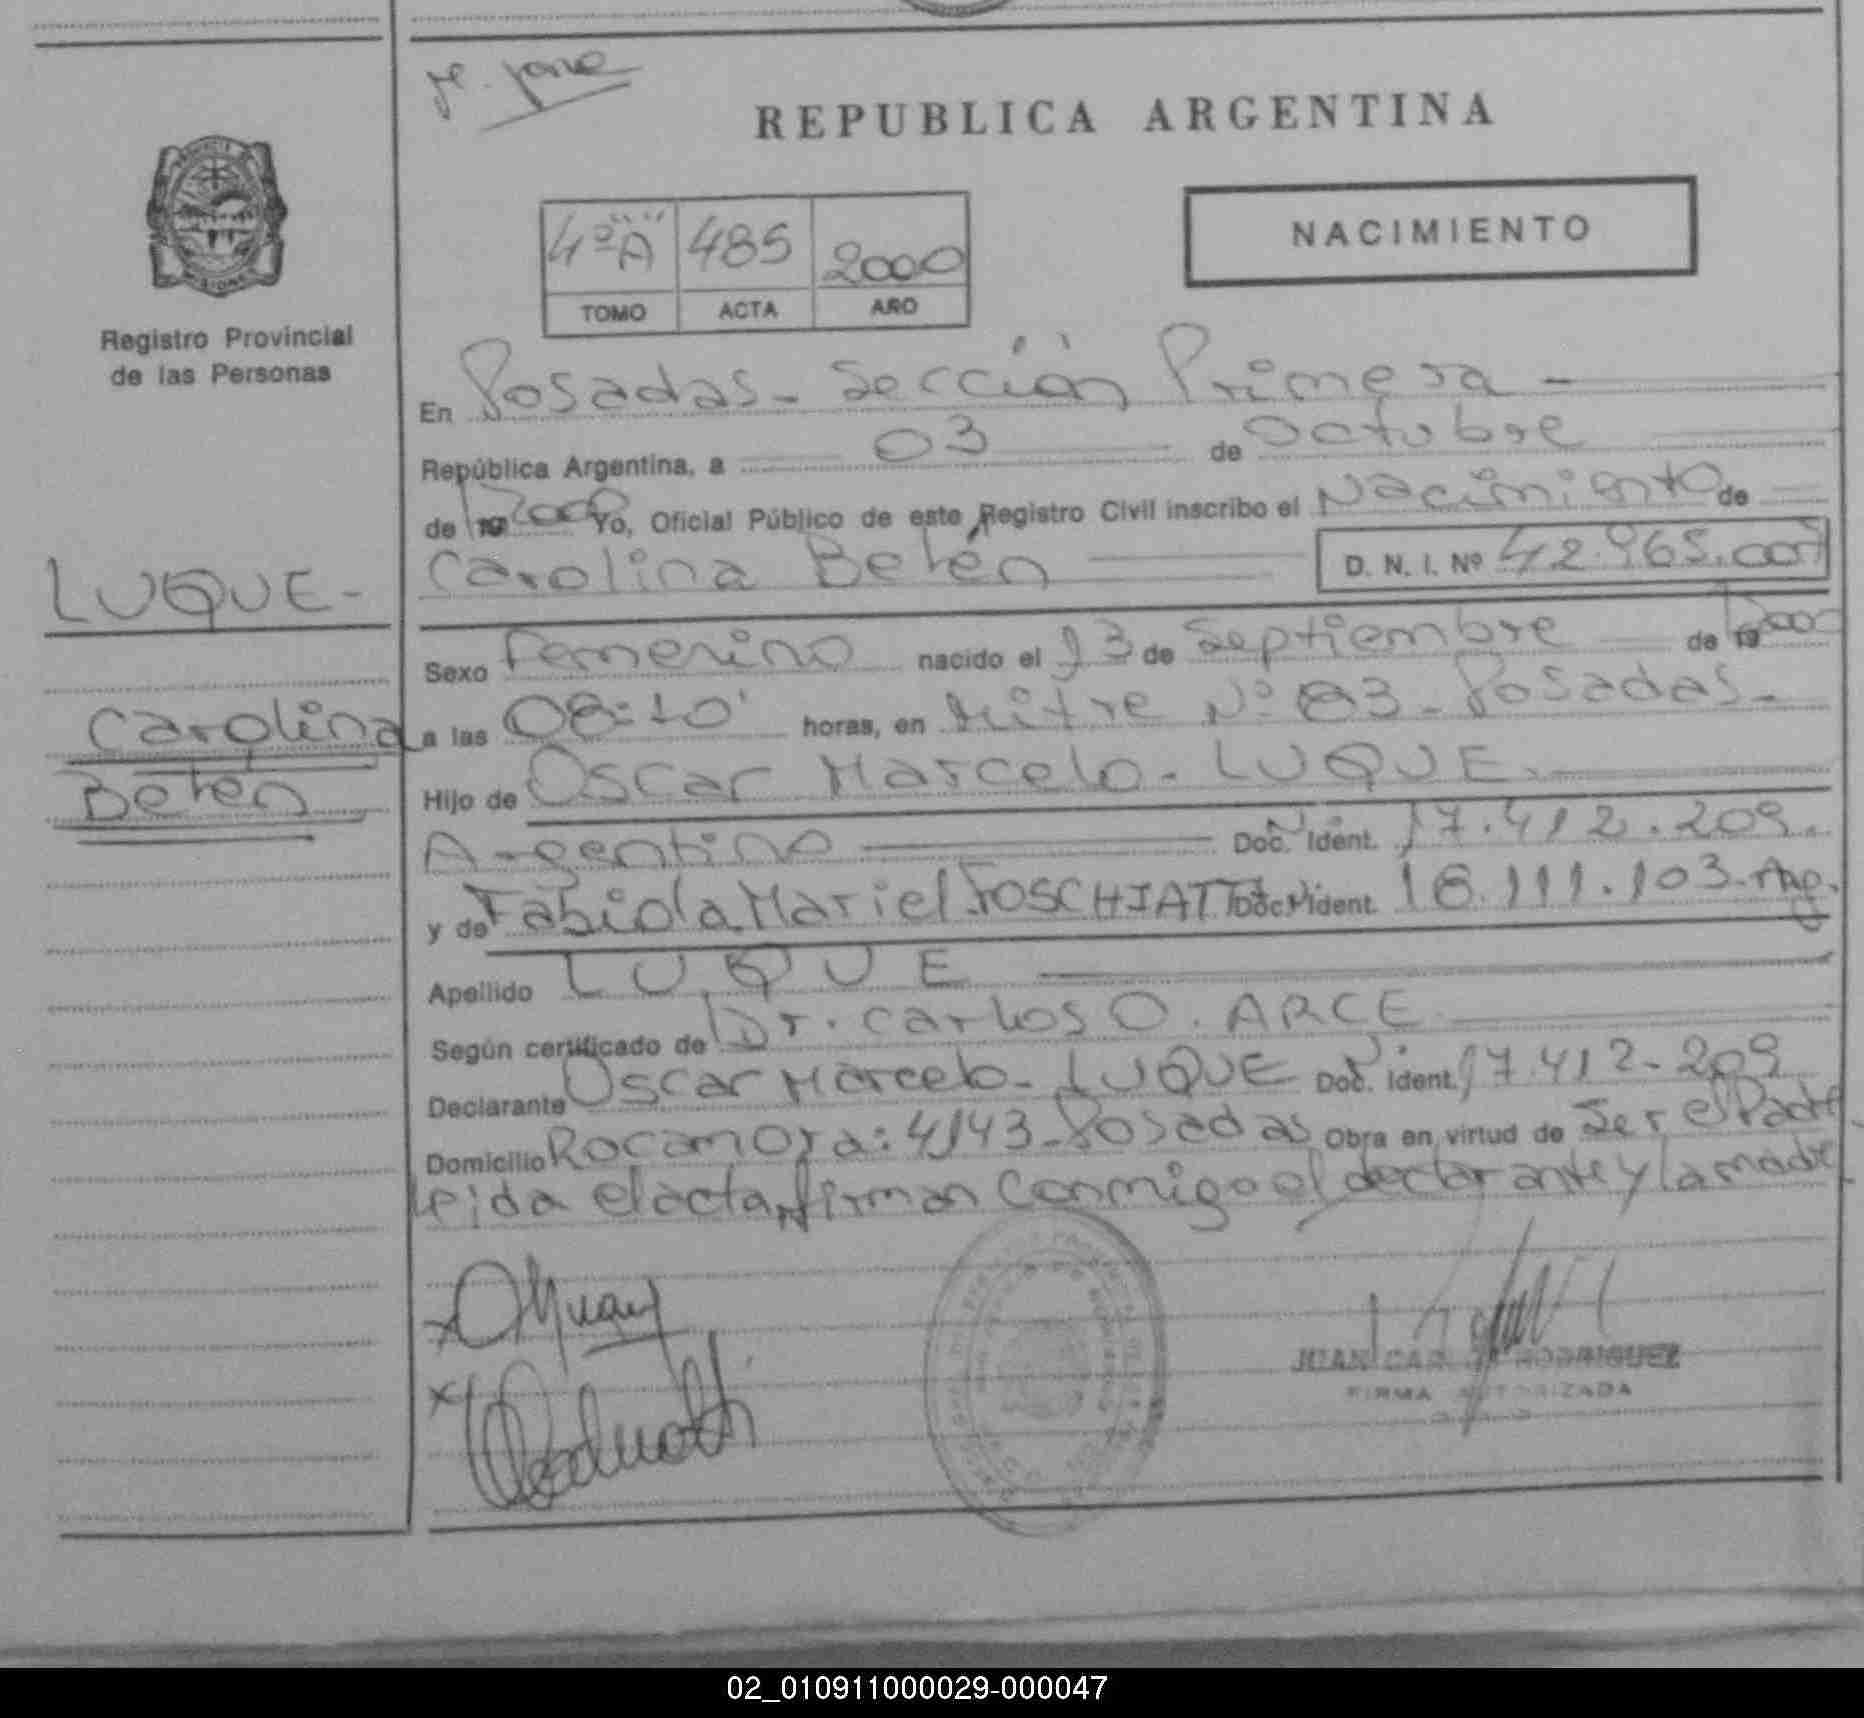 REPUBLICA ARGENTINA
4º "A" 485 2000
TOMO ACTA AÑO
NACIMIENTO
Registro Provincial
de las Personas
En Posadas - Sección Primera -
República Argentina, a 03 de Octubre
de 19 2000 Yo, Oficial Público de este Registro Civil inscribo el Nacimiento de
Carolina Belén D. N. I. Nº 42.965.001
LUQUE-
Carolina
Belén
Sexo Femenino nacido el 13 de Septiembre de 19 2000
a las 08:10' horas, en Mitre Nº 83 - Posadas -
Hijo de Oscar Marcelo - LUQUE -
Argentino Doc. Ident. 17.412.209.
y de Fabiola Mariel FOSCHIATTI Doc. Ident. 18.111.103 - Arg.
Apellido LUQUE
Según certificado de Dr. Carlos O. ARCE
Declarante Oscar Marcelo - LUQUE Doc. Ident. 17.412-209
Domicilio Rocamora: 4143 - Posadas Obra en virtud de Ser el Padre
leida el acta, firman conmigo el declarante y la madre
JUAN CARLOS RODRIGUEZ
FIRMA AUTORIZADA
02_010911000029-000047